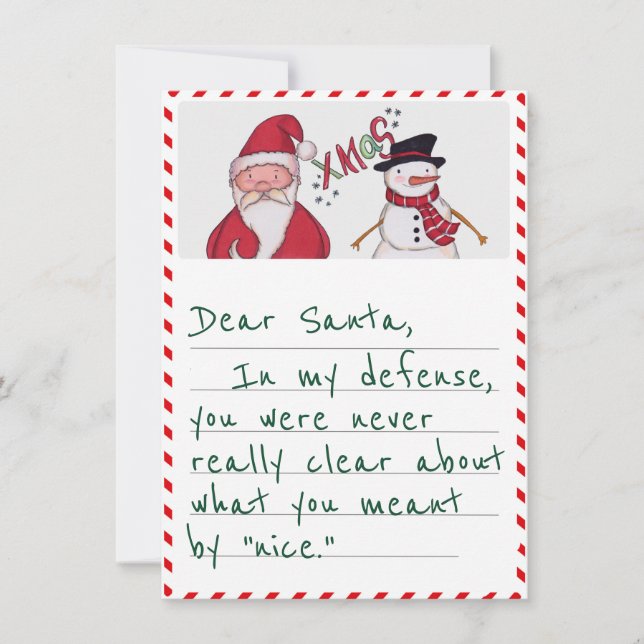 XMaS
Dear Santa,
In my defense,
you were never
really clear about
what you meant
by "nice."